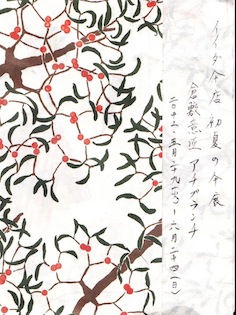 イイダ傘店 初夏の傘展
倉敷意匠 アチブランチ
二〇十三、五月二十九(水)ー六月二十四(日)